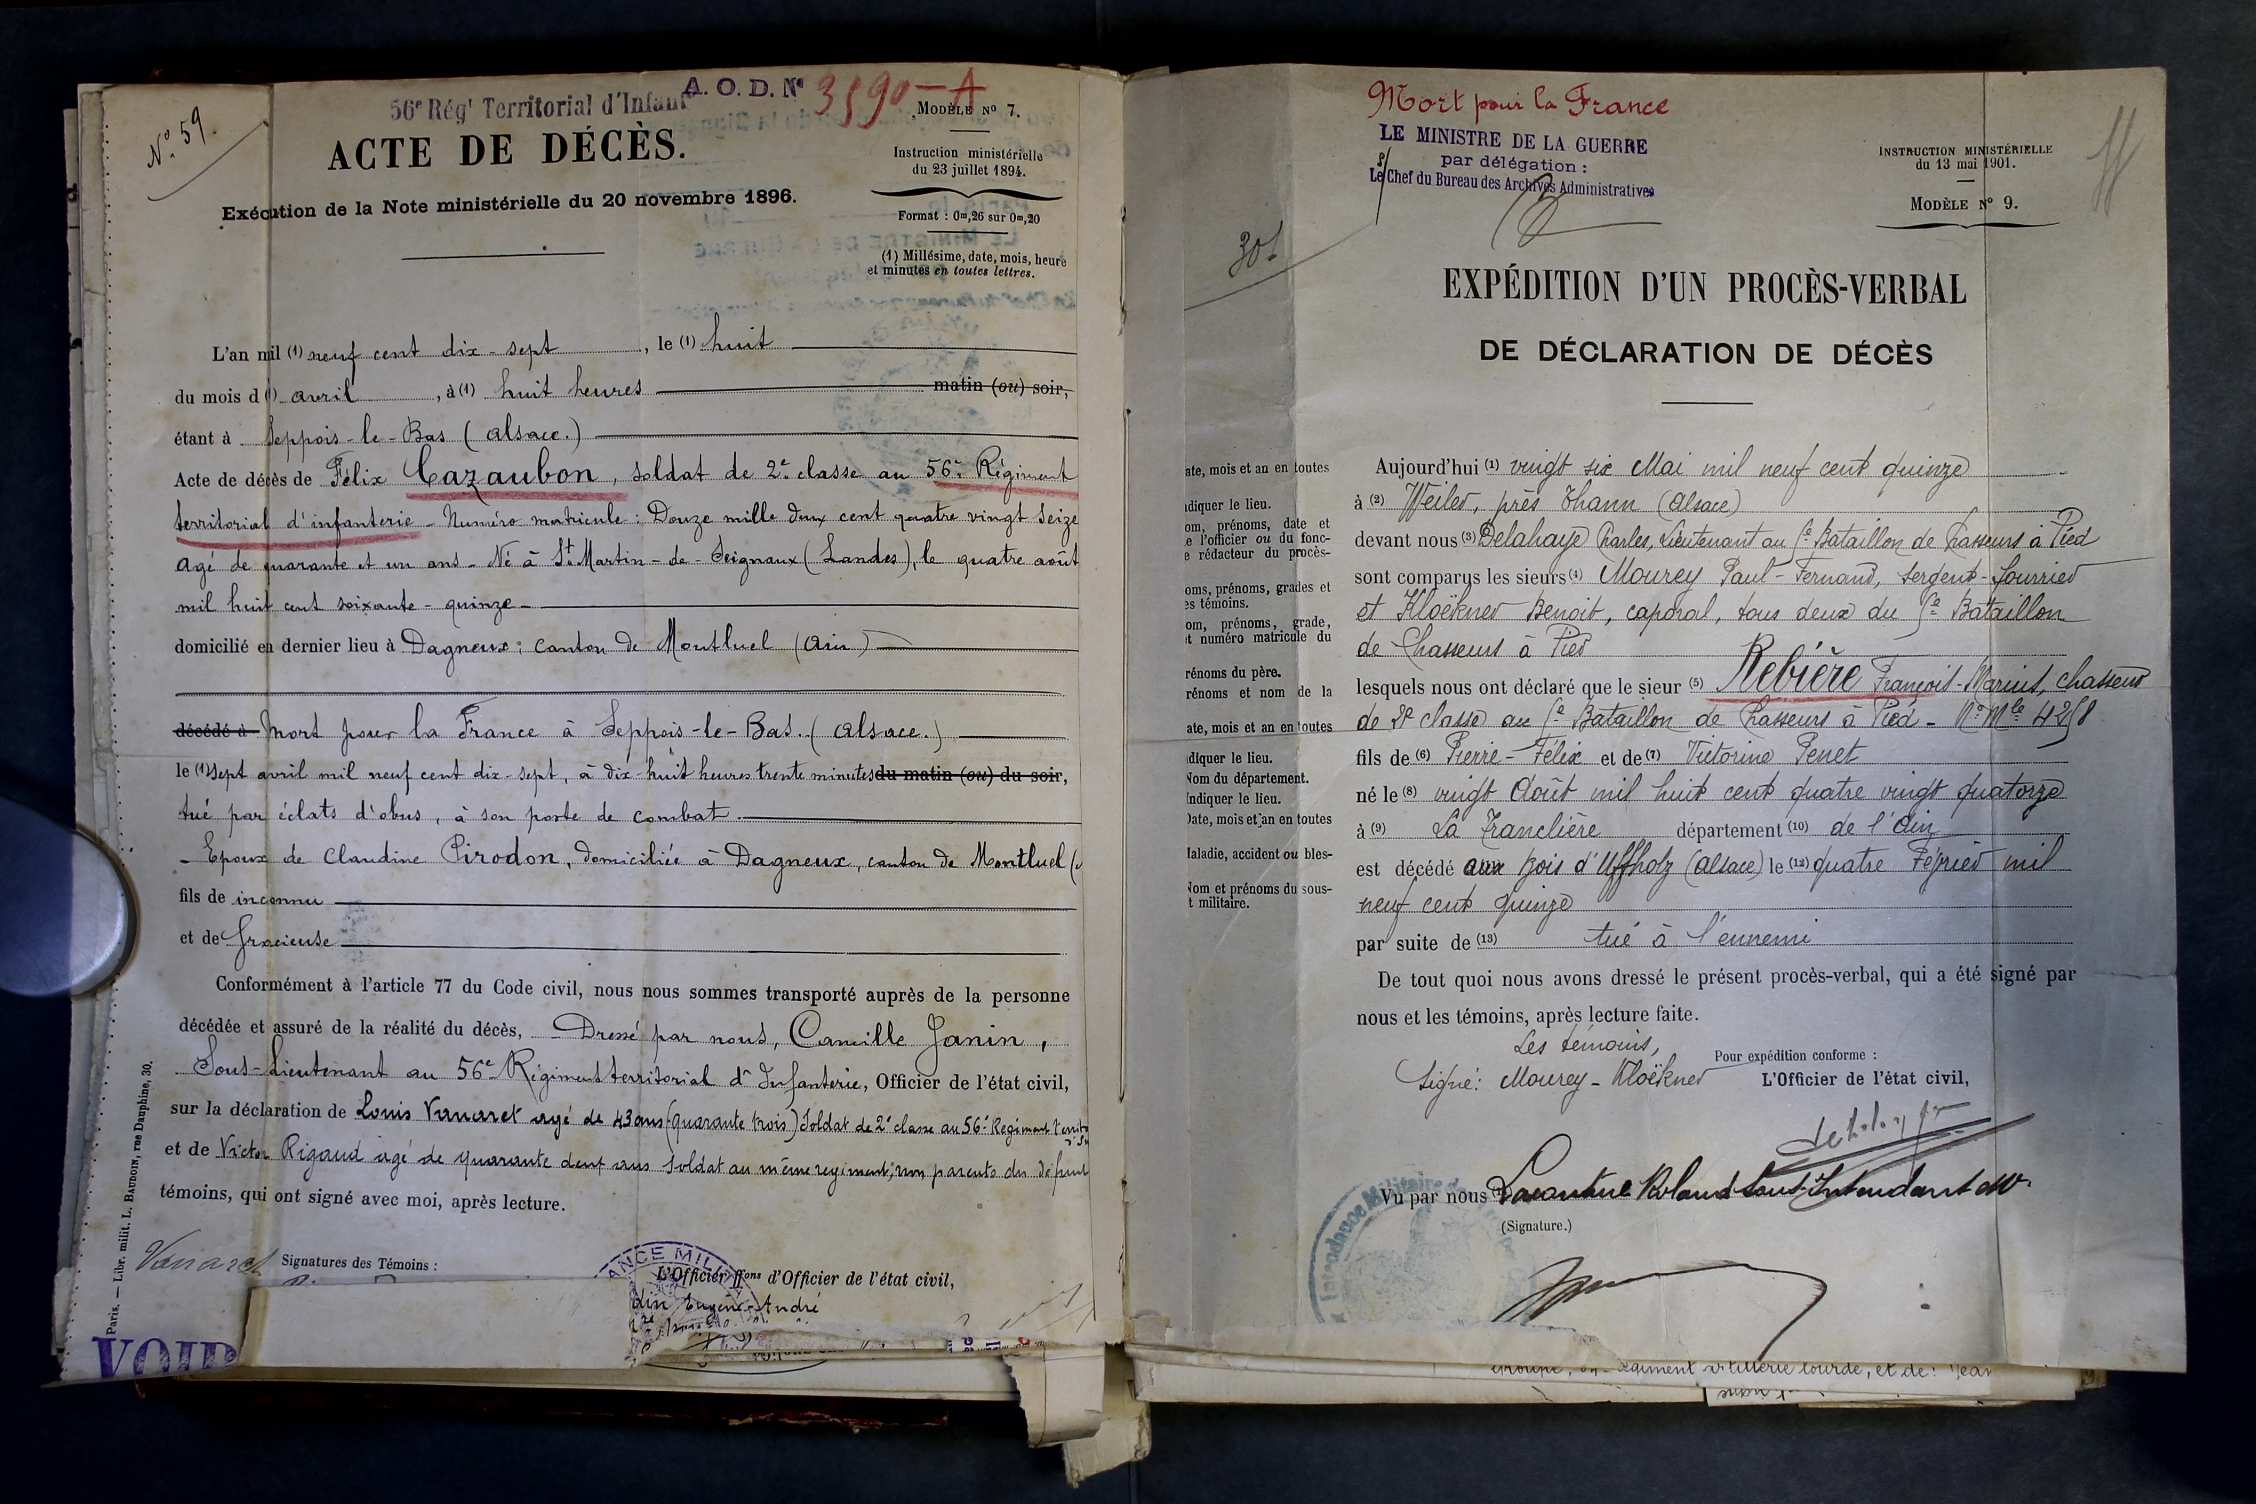 No. 59.
56e Régt Territorial d'Infant
A. O. D. No 3590-A
ACTE DE DÉCÈS.
Exécution de la Note ministérielle du 20 novembre 1896.
MODÈLE No 7.
Instruction ministérielle
du 23 juillet 1894.
Format : 0m,26 sur 0m,20
(1) Millésime, date, mois, heure
et minutes en toutes lettres.
L'an mil (1) neuf cent dix-sept, le (1) huit
du mois d (1) avril, à (1) huit heures matin (ou) soir,
étant à Seppois-le-Bas (Alsace.)
Acte de décès de Félix Cazaubon, soldat de 2e classe au 56e Régiment
territorial d'infanterie - Numéro matricule : Douze mille deux cent quatre vingt seize
agé de quarante et un ans - Né à St Martin-de-Seignaux (Landes), le quatre août
mil huit cent soixante-quinze -
domicilié en dernier lieu à Dagneux; canton de Montluel (Ain)
décédé à Mort pour la France à Seppois-le-Bas. (Alsace.)
le (1) sept avril mil neuf cent dix-sept, à dix-huit heures trente minutes du matin (ou) du soir,
tué par éclats d'obus, à son poste de combat.
- Epoux de Claudine Pirodon, domiciliée à Dagneux, canton de Montluel
fils de inconnu
et de Gracieuse
Conformément à l'article 77 du Code civil, nous nous sommes transporté auprès de la personne
décédée et assuré de la réalité du décès, - Dressé par nous, Camille Janin,
Sous-Lieutenant au 56e Régiment territorial d'Infanterie, Officier de l'état civil,
sur la déclaration de Louis Vanaret agé de 43 ans (quarante trois) Soldat de 2e classe au 56e Regiment
et de Victor Rigaud agé de quarante deux ans soldat au même regiment; non parents du défunt
témoins, qui ont signé avec moi, après lecture.
Vanaret
Signatures des Témoins :
L'Officier ffons d'Officier de l'état civil,
din Eugène-André
Paris. — Libr. milit. L. BAUDOIN, rue Dauphine, 30.
VOIR
Mort pour la France
LE MINISTRE DE LA GUERRE
par délégation :
Le Chef du Bureau des Archives Administratives
INSTRUCTION MINISTÉRIELLE
du 13 mai 1901.
MODÈLE No 9.
301
EXPÉDITION D'UN PROCÈS-VERBAL
DE DÉCLARATION DE DÉCÈS
ate, mois et an en toutes
diquer le lieu.
om, prénoms, date et
e l'officier ou du fonc-
e rédacteur du procès-
oms, prénoms, grades et
es témoins.
om, prénoms, grade,
t numéro matricule du
rénoms du père.
rénoms et nom de la
ate, mois et an en toutes
diquer le lieu.
Nom du département.
Indiquer le lieu.
Date, mois et an en toutes
Maladie, accident ou bles-
Nom et prénoms du sous-
t militaire.
Aujourd'hui (1) vingt six Mai mil neuf cent quinze
à (2) Weiler, près Thann (Alsace)
devant nous (3) Delahaye Charles, Lieutenant au 5e Bataillon de Chasseurs à Pied
sont comparus les sieurs (4) Mourey Paul-Fernand, sergent-fourrier
et Kloëkner Benoit, caporal, tous deux du 5e Bataillon
de Chasseurs à Pied
lesquels nous ont déclaré que le sieur (5) Rebière François-Marius, chasseur
de 2e classe au 5e Bataillon de Chasseurs à Pied - No Mle 4258
fils de (6) Pierre-Félix et de (7) Victorine Penet
né le (8) vingt Août mil huit cent quatre vingt quatorze
à (9) La Tranclière département (10) de l'Ain
est décédé aux bois d'Uffholz (Alsace) le (12) quatre Février mil
neuf cent quinze
par suite de (13) tué à l'ennemi
De tout quoi nous avons dressé le présent procès-verbal, qui a été signé par
nous et les témoins, après lecture faite.
Les témoins,
Signé: Mourey - Kloëkner
Pour expédition conforme :
L'Officier de l'état civil,
Vu par nous Roland Sous-Intendant
(Signature.)
Intendance Militaire